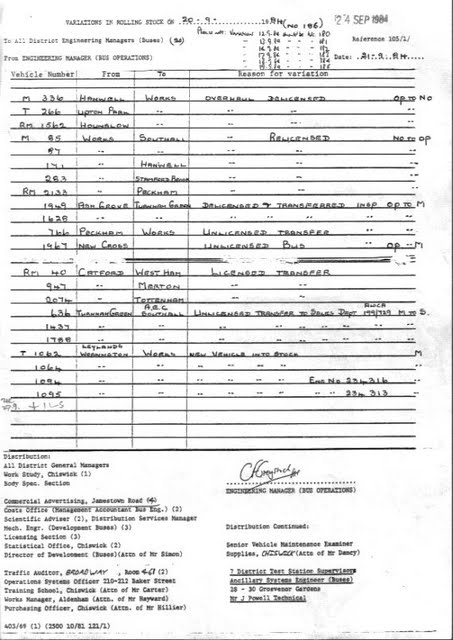 VARIATIONS IN ROLLING STOCK ON 20-9- 1984 (NO 186) 24 SEP 1984
To All District Engineering Managers (Buses) Reference 105/1/
From ENGINEERING MANAGER (BUS OPERATIONS) Date: 21-9-84
Vehicle Number From To Reason for variation
M 336 HANWELL WORKS OVERHAUL DELICENSED OP TO NO
T 266 UPTON PARK " " " "
RM 1562 HOUNSLOW " " " "
M 85 WORKS SOUTHALL RELICENSED NO TO OP
97 " " " "
171 " HANWELL " "
283 " STAMFORD BROOK " "
RM 2133 " PECKHAM " "
1949 ASH GROVE TURNHAM GREEN DELICENSED & TRANSFERRED INSP OP TO M
1628 " " " " " "
766 PECKHAM WORKS UNLICENSED TRANSFER " "
1967 NEW CROSS " UNLICENSED BUS OP - M
RM 40 CATFORD WEST HAM LICENSED TRANSFER
947 " MERTON " "
2074 " TOTTENHAM " "
636 TURNHAM GREEN A.E.C. SOUTHALL UNLICENSED TRANSFER TO SALES DEPT 199/729 M TO S.
1437 " " " " " "
1788 " " " " " "
T 1062 LEYLANDS WORKINGTON WORKS NEW VEHICLE INTO STOCK M
1064 " " " " " "
1094 " " " " ENG NO 234316 "
1095 " " " " " 234313 "
Distribution:
All District General Managers
Work Study, Chiswick (1)
Body Spec. Section
ENGINEERING MANAGER (BUS OPERATIONS)
Commercial Advertising, Jamestown Road (4)
Costs Office (Management Accountant Bus Eng.) (2)
Scientific Adviser (2), Distribution Services Manager
Mech. Engr. (Development Buses) (3)
Licensing Section (3)
Statistical Office, Chiswick (2)
Director of Development (Buses)(Attn of Mr Simon)
Distribution Continued:
Senior Vehicle Maintenance Examiner
Supplies, CHISWICK (Attn of Mr Dancy)
Traffic Auditor, BROADWAY, Room 461 (2)
Operations Systems Officer 210-212 Baker Street
Training School, Chiswick (Attn of Mr Carter)
Works Manager, Aldenham (Attn. of Mr Hayward)
Purchasing Officer, Chiswick (Attn. of Mr Hillier)
7 District Test Station Supervisors
Ancillary Systems Engineer (Buses)
28 - 30 Grosvenor Gardens
Mr J Powell Technical
403/69 (1) (2500 10/81 121/1)